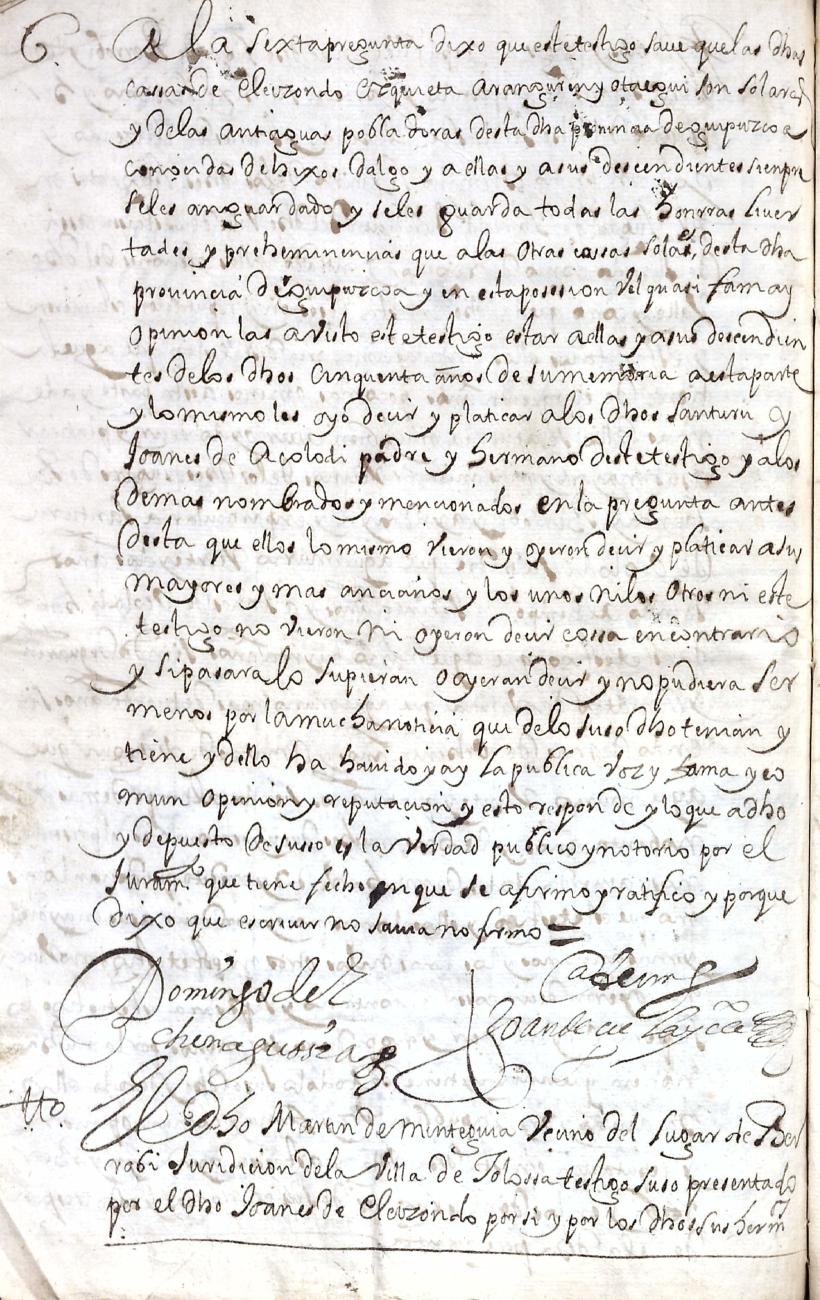 6. A la sexta pregunta dixo que este testigo saue que las dhas
cassas de Eleizondo Ezquieta Aranguren y Otaegui son solares
y de las antiguas pobladoras desta dha prouincia de guipuzcoa
conocidas de hixos dalgo y a ellas y a sus descendientes sienpre
seles an guardado y seles guarda todas las honrras liuer
tades y preheminencias que a las otras cassas solares desta dha
prouincia de guipuzcoa y en esta posesion vel quasi fama y
opinion las a visto este testigo estar a ellas y a sus descendien
tes de los dhos cinquenta años de su memoria a esta parte
y lo mismo les oyo decir y platicar a los dhos Santuru y
Joanes de Açolodi padre y hermano deste testigo y a los
demas nombrados y mencionados en la pregunta antes
desta que ellos lo mismo vieron y oyeron decir y platicar a sus
mayores y mas ancianos y los unos ni los otros ni este
testigo no vieron ni oyeron decir cossa en contrario
y si pasara lo supieran o oyeran decir y no pudiera ser
menos por la mucha noticia que de lo suso dho tenian y
tiene y dello ha hauido y ay la publica voz y fama y co
mun opinion y reputacion y esto responde y lo que a dho
y depuesto de susso es la verdad publico y notorio por el
juramto que tiene fecho en que se afirmo y ratifico y porque
dixo que escriuir no sauia no firmo =
Domingo de
Joan
tto. El dho Martin de Minteguia vecino del lugar de Ber
robi juridicion de la Villa de Tolossa testigo suso presentado
por el dho Joanes de Eleizondo por si y por los dhos sus herm